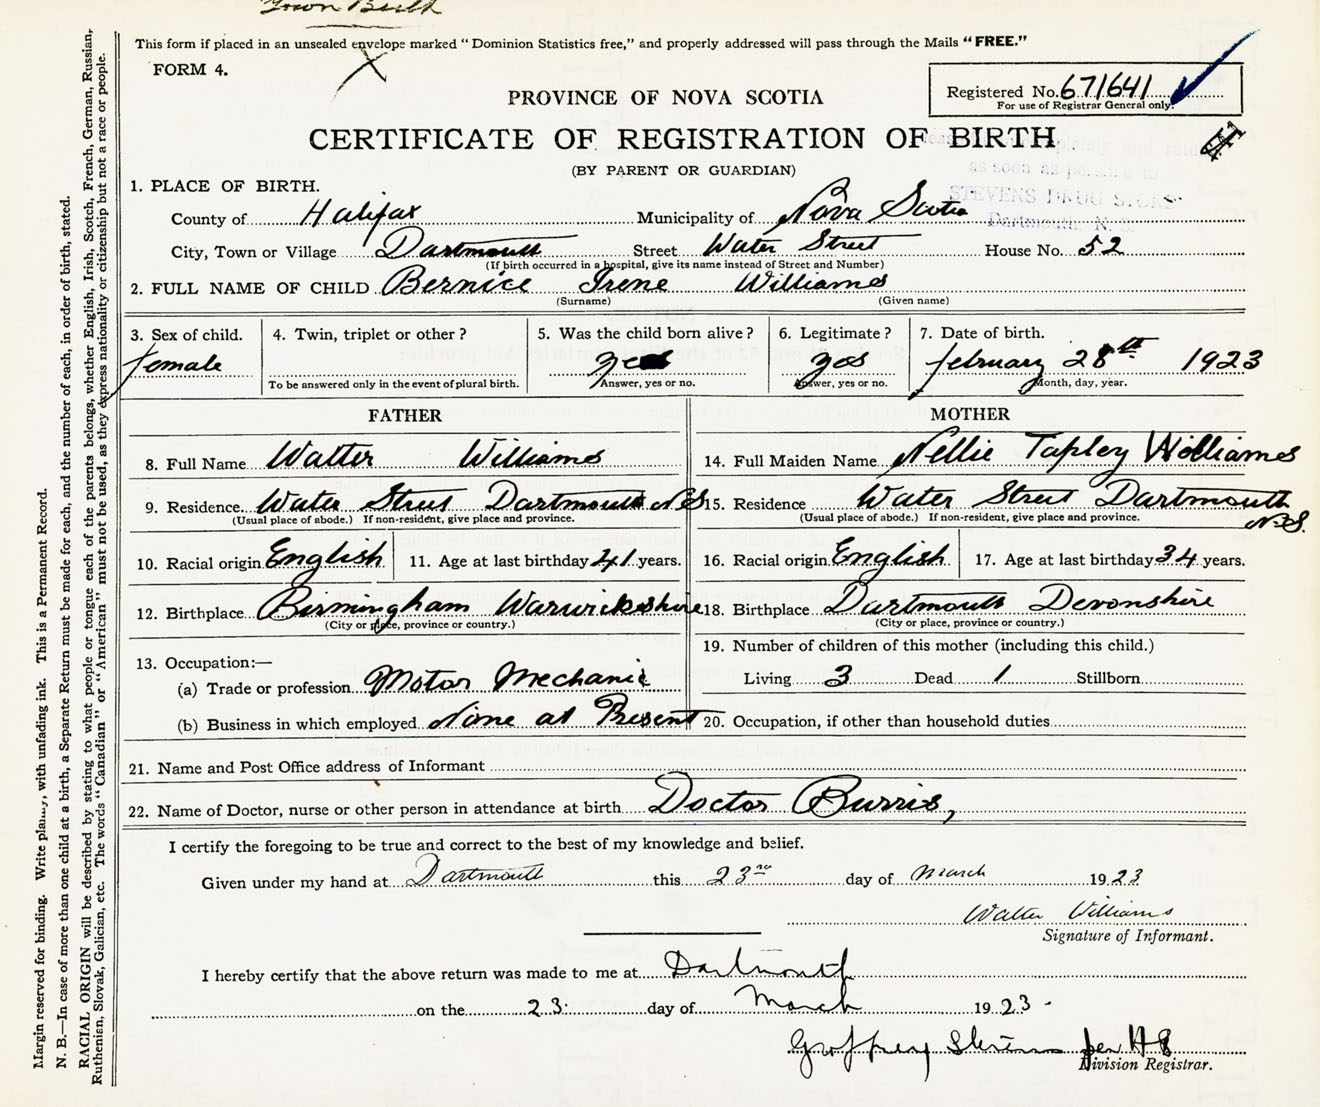 Town Birth
This form if placed in an unsealed envelope marked "Dominion Statistics free," and properly addressed will pass through the Mails "FREE."
FORM 4.
Registered No. 671641
For use of Registrar General only.
PROVINCE OF NOVA SCOTIA
CERTIFICATE OF REGISTRATION OF BIRTH
(BY PARENT OR GUARDIAN)
as soon as to
STEVENS DRUG STORE
Dartmouth, N. S.
1. PLACE OF BIRTH.
County of Halifax Municipality of Nova Scotia
City, Town or Village Dartmouth Street Water Street House No. 52
(If birth occurred in a hospital, give its name instead of Street and Number)
2. FULL NAME OF CHILD Bernice Irene Williams
(Surname) (Given name)
3. Sex of child. 4. Twin, triplet or other? 5. Was the child born alive? 6. Legitimate? 7. Date of birth.
female yes yes february 28th 1923
To be answered only in the event of plural birth. Answer, yes or no. Answer, yes or no. Month, day, year.
FATHER MOTHER
8. Full Name Walter Williams 14. Full Maiden Name Nellie Tapley Williams
9. Residence Water Street Dartmouth N.S 15. Residence Water Street Dartmouth N.S.
(Usual place of abode.) If non-resident, give place and province. (Usual place of abode.) If non-resident, give place and province.
10. Racial origin English 11. Age at last birthday 41 years. 16. Racial origin English 17. Age at last birthday 34 years.
12. Birthplace Birmingham Warwickshire 18. Birthplace Dartmouth Devonshire
(City or place, province or country.) (City or place, province or country.)
13. Occupation:— 19. Number of children of this mother (including this child.)
(a) Trade or profession Motor Mechanic Living 3 Dead 1 Stillborn
(b) Business in which employed None at Present 20. Occupation, if other than household duties
21. Name and Post Office address of Informant
22. Name of Doctor, nurse or other person in attendance at birth Doctor Burris,
I certify the foregoing to be true and correct to the best of my knowledge and belief.
Given under my hand at Dartmouth this 23rd day of March 1923
Walter Williams
Signature of Informant.
I hereby certify that the above return was made to me at Dartmouth
on the 23. day of March 1923.
Geoffrey Stevens per H
Division Registrar.
Margin reserved for binding. Write plainly, with unfading ink. This is a Permanent Record.
N. B.—In case of more than one child at a birth, a Separate Return must be made for each, and the number of each, in order of birth, stated.
RACIAL ORIGIN will be described by stating to what people or tongue each of the parents belongs, whether English, Irish, Scotch, French, German, Russian,
Ruthenian, Slovak, Galician, etc. The words "Canadian" or "American" must not be used, as they express nationality or citizenship but not a race or people.